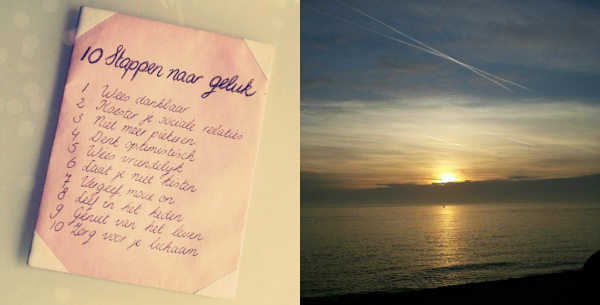 10 Stappen naar geluk
1 Wees dankbaar
2 Koester je sociale relaties
3 Niet meer piekeren
4 Denk optimistisch
5 Wees vriendelijk
6 Laat je niet kisten
7 Vergeef, move on
8 Leef in het heden
9 Geniet van het leven
10 Zorg voor je lichaam